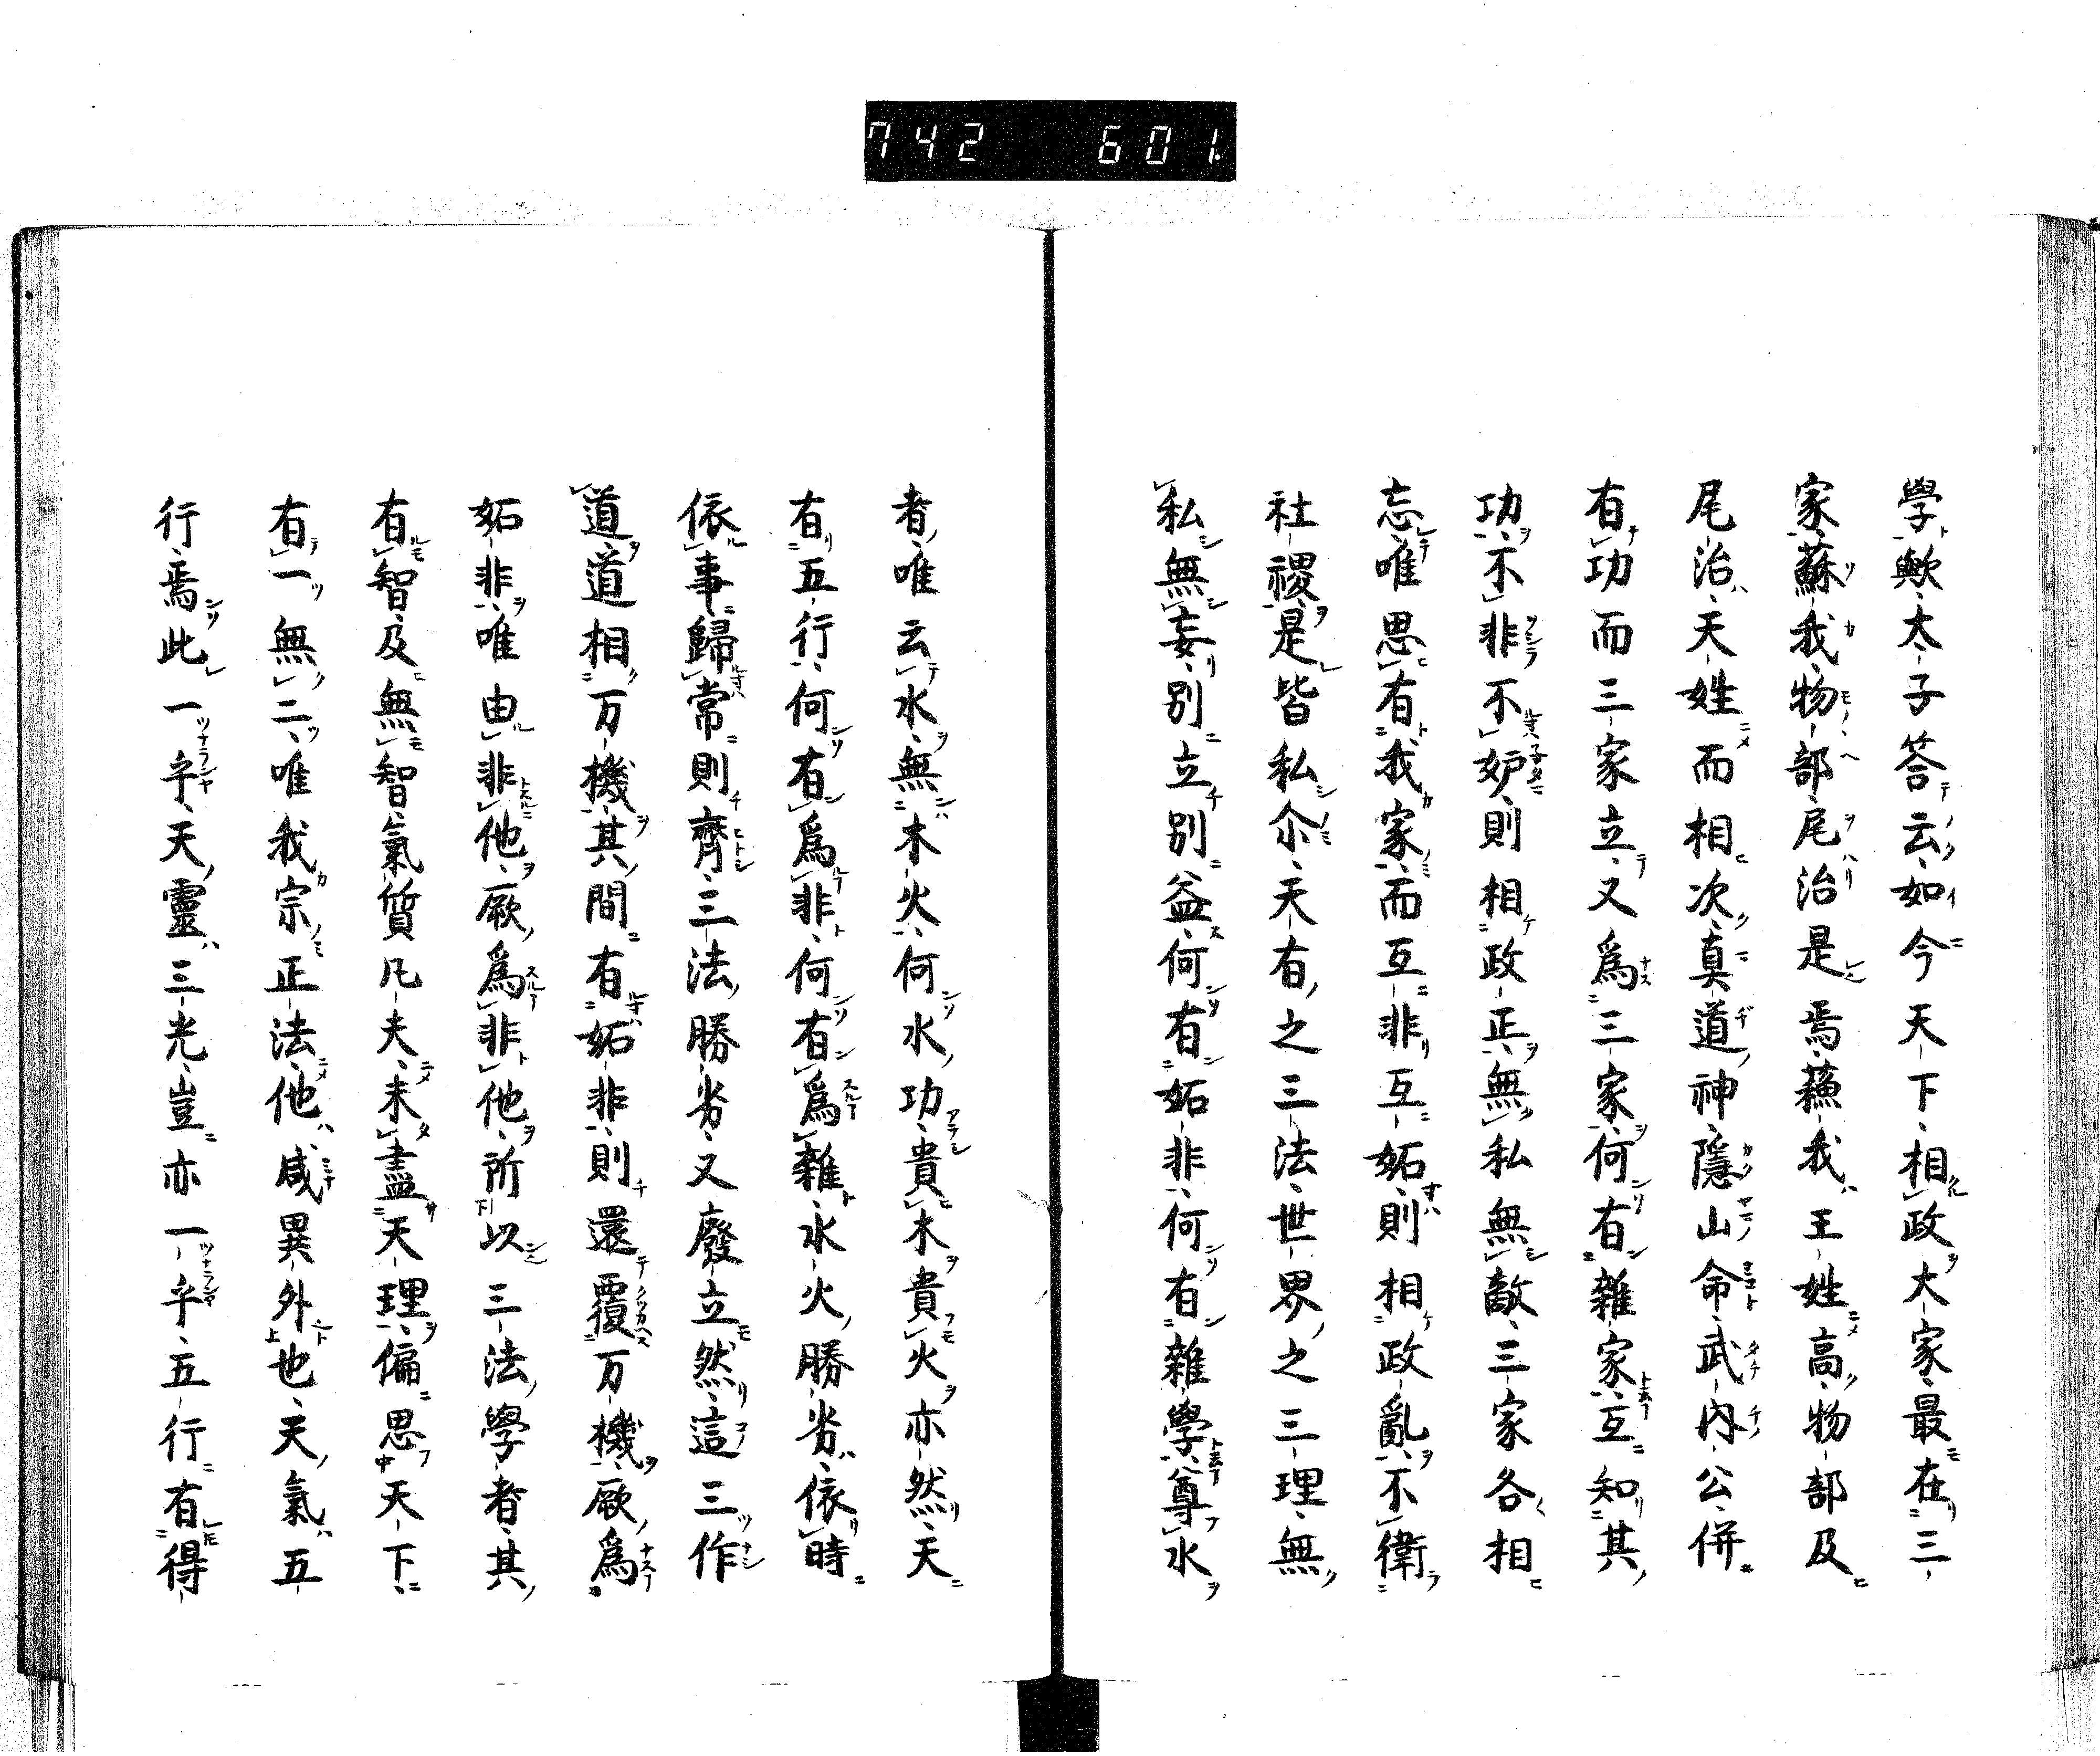 742 601.
學歟太子答云如今天下相政大家最在三
家蘇我物部尾治是焉蘓我王姓高物部及
尾治天姓而相次真道神隱山命武内公併
有功而三家立又爲三家何有雜家互知其
功不非不妒則相政正無私無敵三家各相
忘唯思有我家而互非互妬則相政亂不衛
社稷是皆私尒天有之三法世界之三理無
私無妄別立別益何有妬非何有雜學尊水
者唯云水無木火何水功貴木貴火亦然天
有五行何有爲非何有爲雜水火勝劣依時
依事歸常則齊三法勝劣又廢立然這三作
道道相万機其間有妬非則還覆万機厥爲
妬非唯由非他厥爲非他所以三法學者其
有智及無智氣質凡夫未盡天理偏思天下
有一無二唯我宗正法他咸異外也天氣五
行焉此一乎天靈三光豈亦一乎五行有得